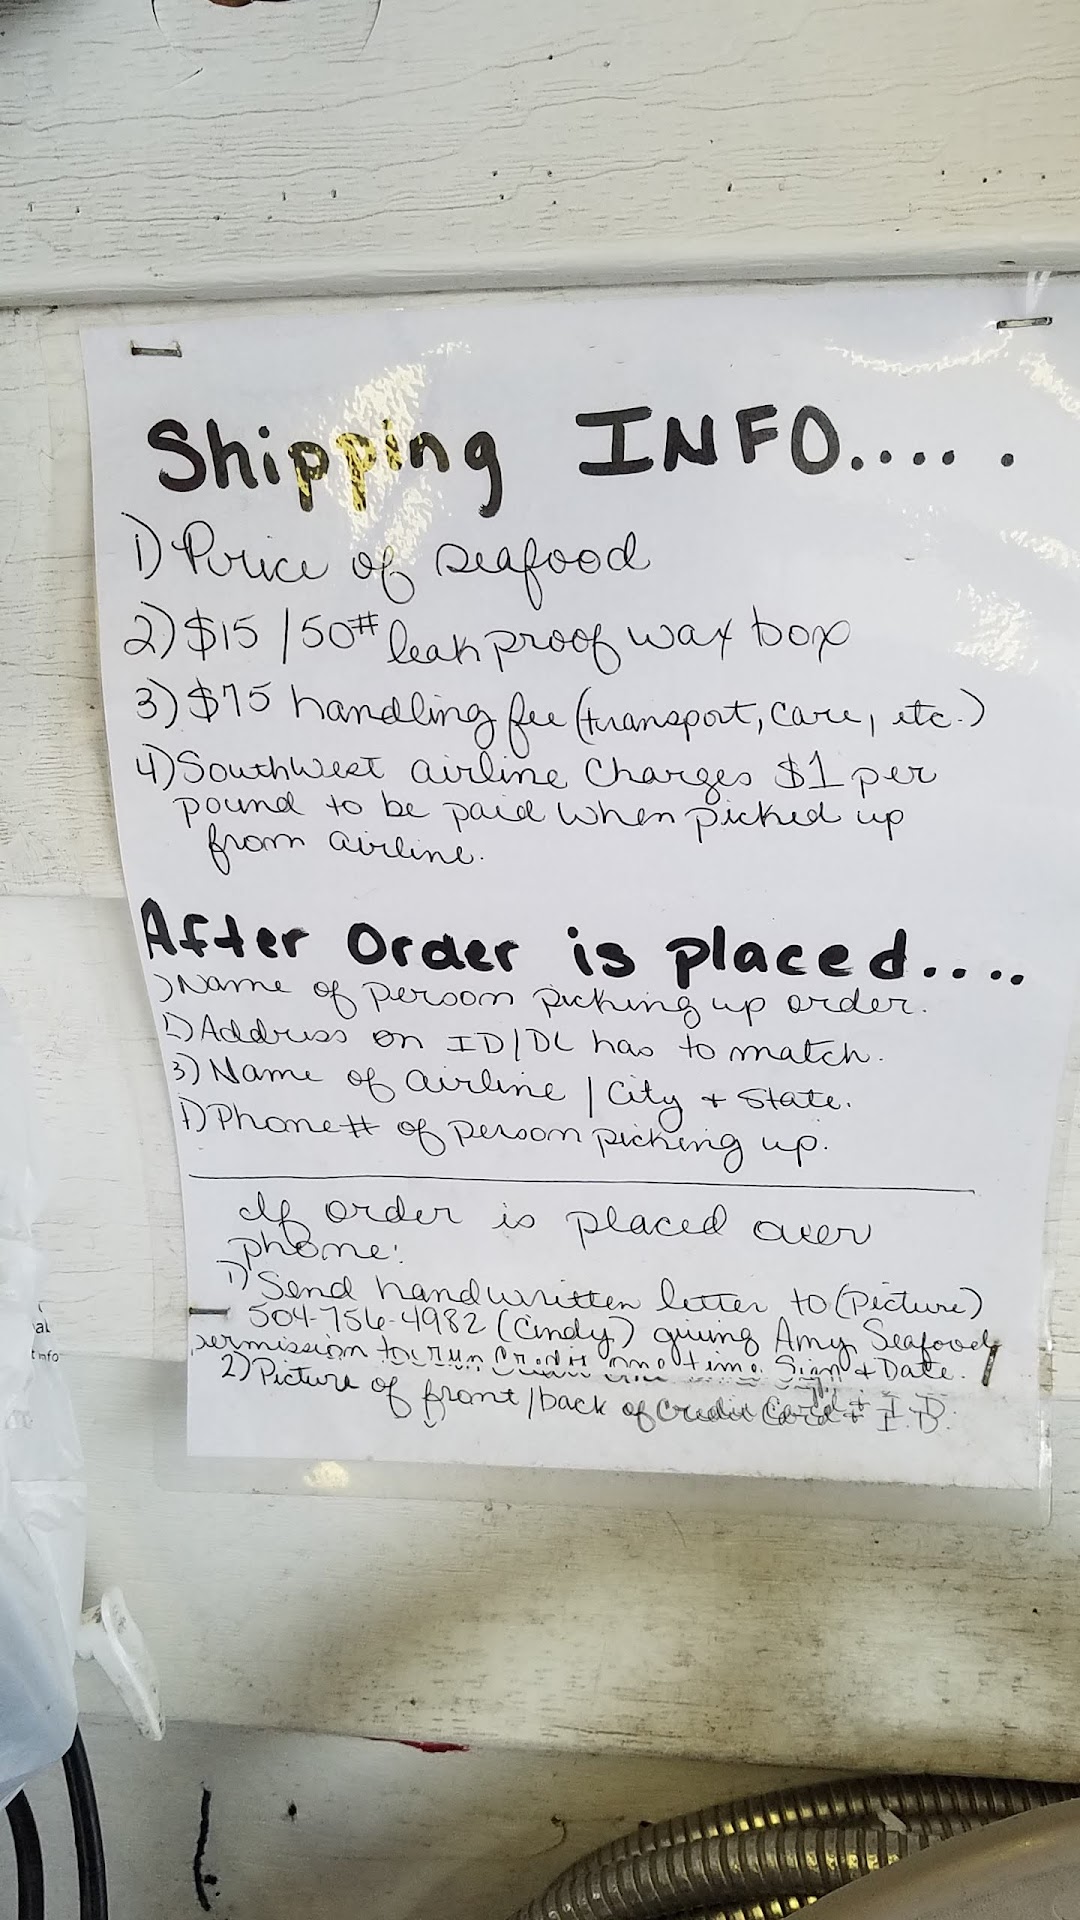 Shipping INFO.....
1) Price of seafood
2) $15 / 50# leak proof wax box
3) $75 handling fee (transport, care, etc.)
4) Southwest airline Charges $1 per
pound to be paid when picked up
from airline.
After Order is placed....
) Name of person picking up order.
2) Address on ID/DL has to match.
3) Name of airline / City + State.
) Phone # of person picking up.
If order is placed over
phone:
1) Send handwritten letter to (Picture)
504-756-4982 (Cindy) giving Amy Seafood
permission to run credit one time. Sign + Date.
2) Picture of front/back of Credit Card + I.D.
al
t info